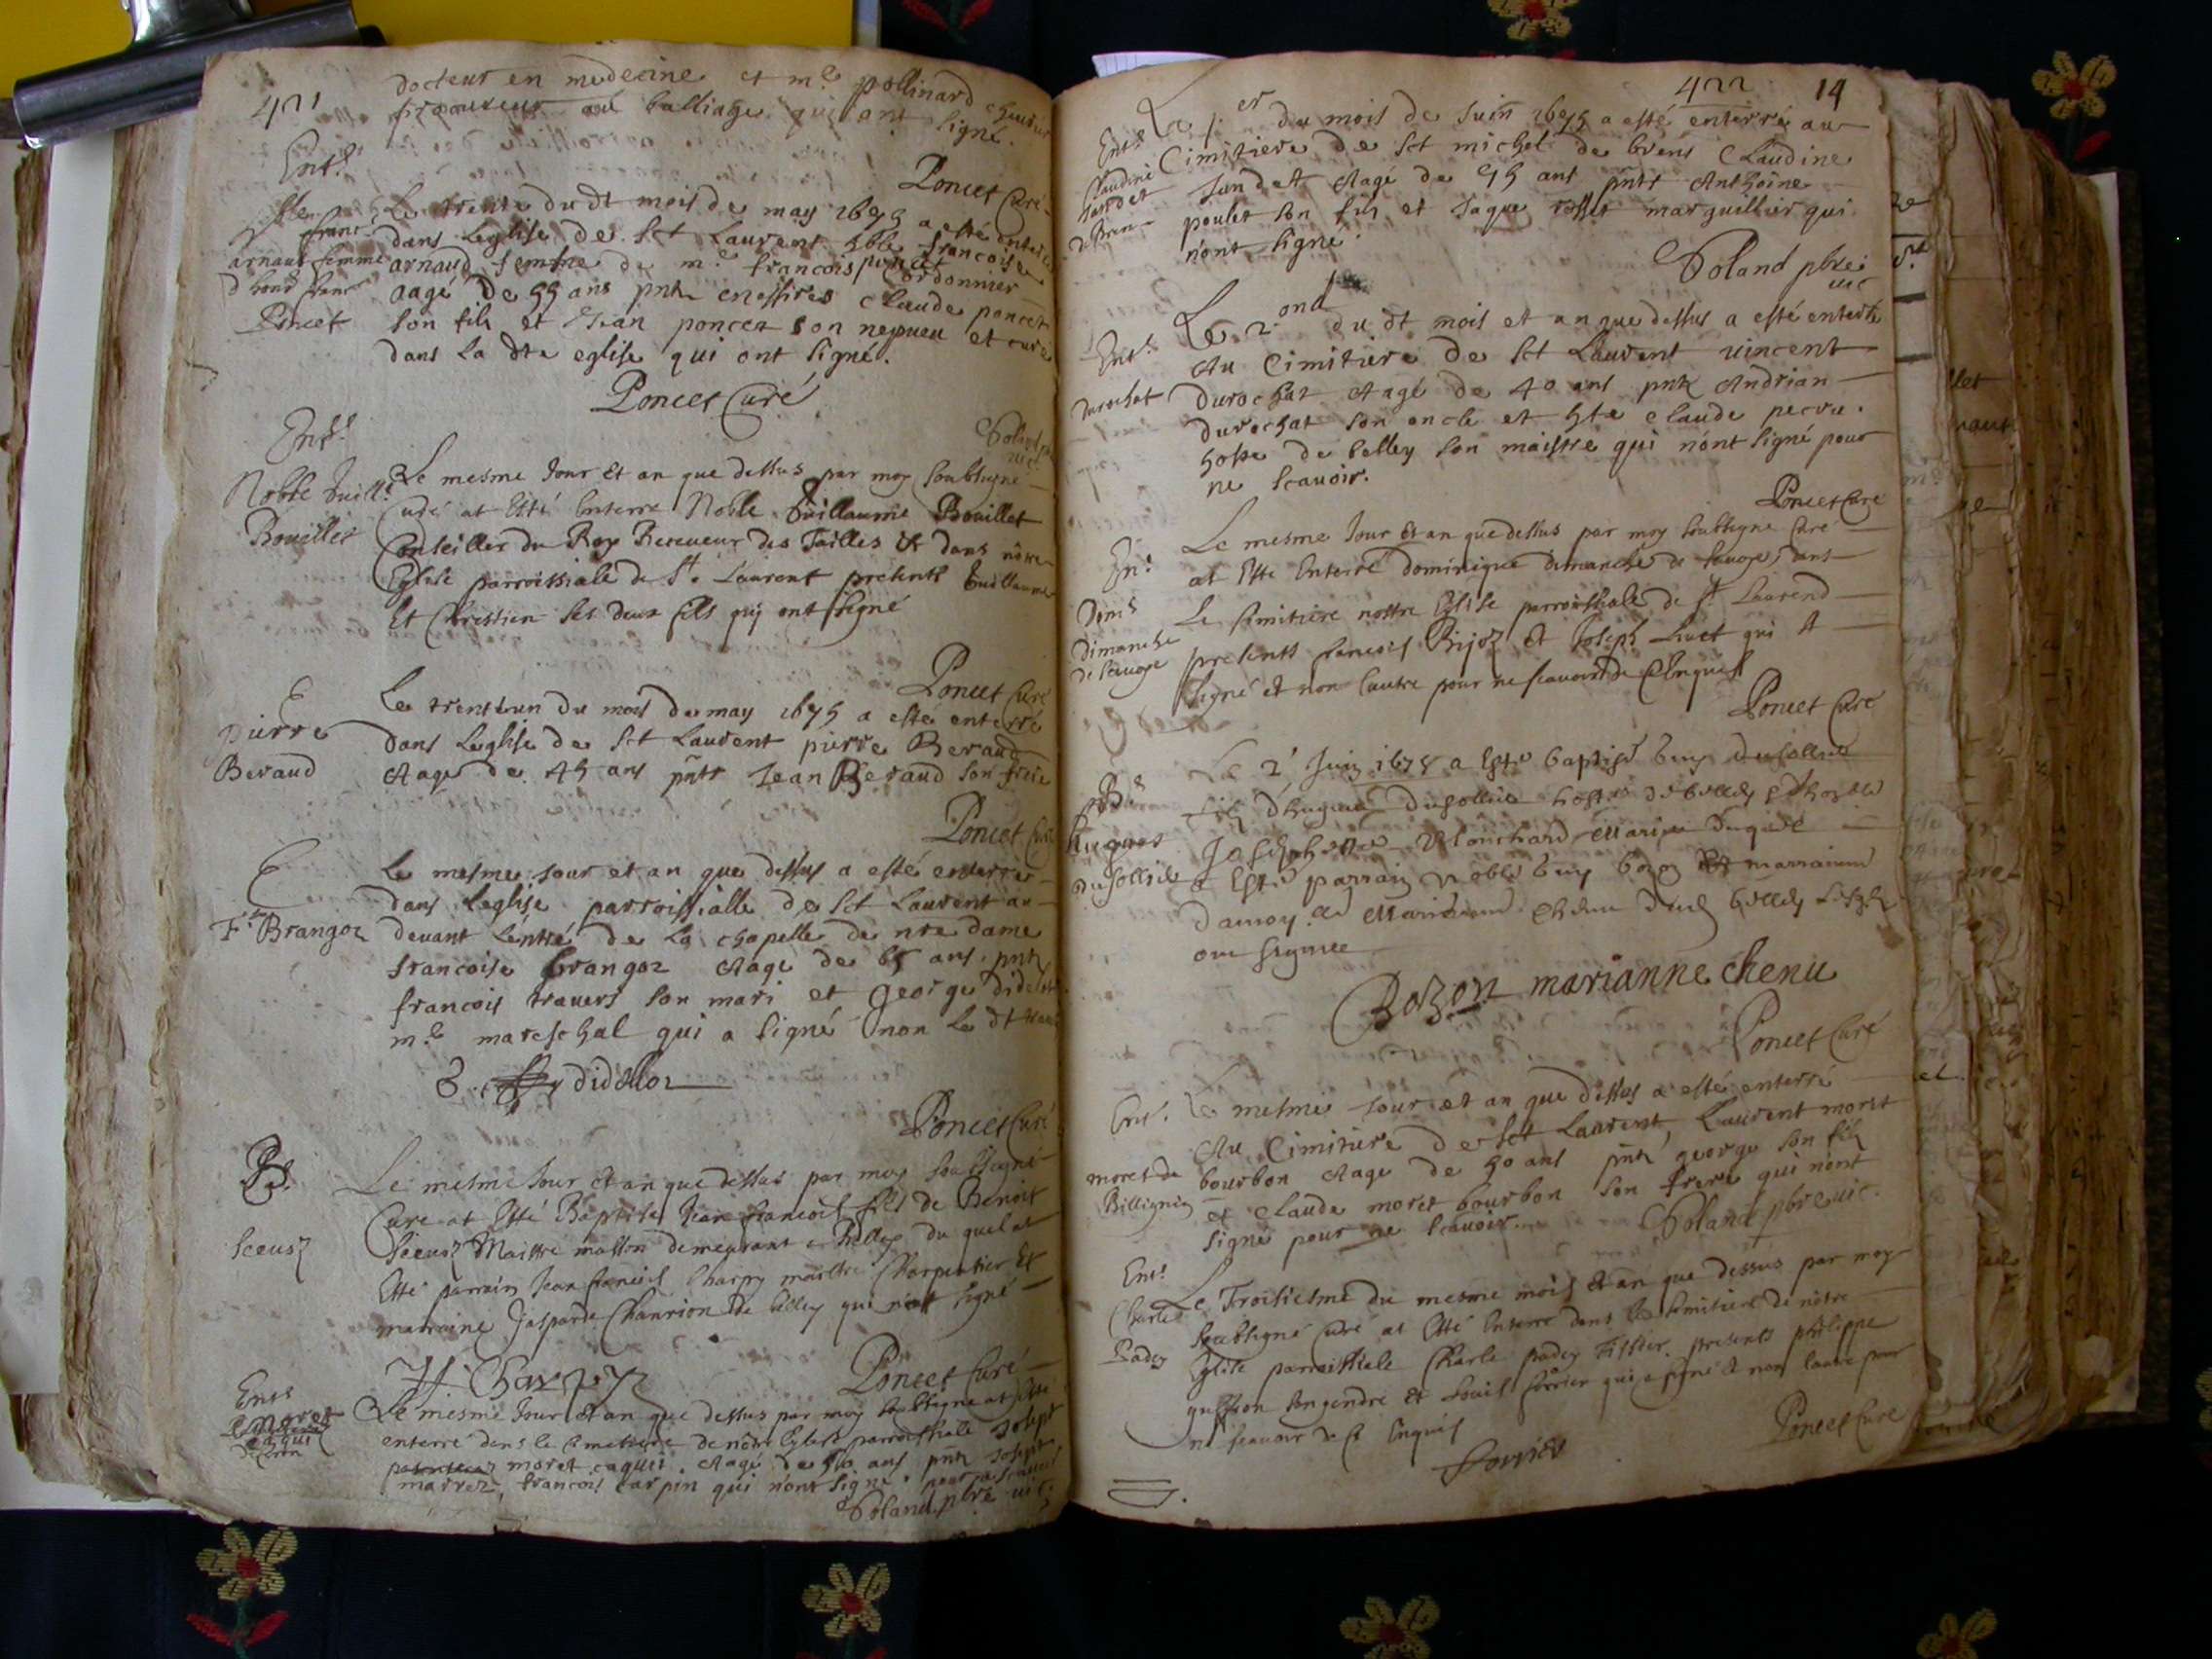 421
docteur en medecine et me pollinard
procureur au balliage qui ont signé.
Poncet Curé
Ent.
franc.
arnaud femme
Poncet
Le trente dudt mois de may 1675 a esté enterrée
dans Leglise de Sct Laurent hble françoise
arnaud femme de me francois poncet Cordonnier
aagé de 55 ans pnts claude poncet
son fils et Jean poncet son nepueu et curé
dans La dte eglise qui ont signé.
Poncet Curé
Noble Guill.
Bouillet
Le mesme Jour Et an que dessus par moy soubsigné
Curé at Esté Enterré Noble Guillaume Bouillet
Conseiller du Roy Receueur des Tailles dans nôtre
Eglise parroissiale de St. Laurent presents Guillaume
Et Chrestien ses deux fils quj ont signé
Poncet Curé
E
pierre
Beraud
Le trenteun du mois de may 1675 a esté enterré
dans Leglise de Sct Laurent pierre Beraud
Aagé de 45 ans pnts Jean Beraud son frere
Poncet Curé
E
Fse Brangoz
Le mesme jour et an que dessus a esté enterrée
dans Leglise parroissialle de Sct Laurent au
deuant Lentré de La chapelle de nre dame
francoise brangoz Aagé de 65 ans pnts
francois trauers son mari et george didelot
me mareschal qui a signé non Le dt
didellot
Poncet Curé
B.
Sceusz
Le mesme Jour Et an que dessus par moy soubsigné
Curé at Esté Baptisé Jean francois fils de Benoit
Sceusz Maistre masson demeurant a Belley du quel at
Esté parrain Jean francois Charpy maistre Charpentier Et
marraine Jasparde Chanrion de belley qui n'ont signé
Jf Charpy
Poncet Curé
Ent.
Moret
caqui
Le mesme Jour Et an que dessus par moy soubsigné at esté
enterré dans le Cimetiere de nôtre Eglise parroissiale Joseph
moret caqui Aagé de ans pnts Joseph
marrez, francois carpin qui n'ont signé pour ne scauoir
Poland pbre uic.
422 14
Ent.
Claudine
Jandet
de Bren
Le 1.er du mois de Juin 1675 a esté enterré au
Cimitiere de Sct michel de brens Claudine
Jandet Aagé de 75 ans pnts Anthoine
poulet son fils et Jaque rosset marguillier qui
n'ont signé.
Poland pbre
uic
Ent.
durochat
Le 2.ond du dt mois et an que dessus a esté enterré
Au Cimitiere de Sct Laurent uincent
durochat Aagé de 40 ans pnts Andrian
durochat son oncle et hte claude
hoste de belley son maistre qui n'ont signé pour
ne scauoir.
Poncet Curé
En.
Domé
dimanche
de sauoye
Le mesme Jour Et an que dessus par moy soubsigné Curé
at Esté Enterré dominique dimanche de sauoye, dans
Le Cimitiere nostre Eglise parroissiale de St Laurend
presents francois Bijoz Et Joseph Liuet qui A
signé et non lautre pour ne scauoir de ce Enquis
Poncet Curé
B.
hugues
dusollier
Le 2e Juin 1675 a Esté baptisé Guy dusollier
fils d'hugues dusollier hoste de belley
Josephete Blonchard Mariés duquel
a Esté parrain noble Guy bozon Et marraine
damoyelle Marianne Chenu
ont signée
Bozon marianne chenu
Poncet Curé
Ent.
moret de
Billignin
Le mesme jour et an que dessus a esté enterré
Au Cimitiere de Sct Laurent, Laurent moret
bourbon Aagé de 50 ans pnts george son fils
et claude moret bourbon son frere qui n'ont
signé pour ne scauoir.
Poland pbre uic.
Ent.
Charle
Padey
Le Troisiesme du mesme mois Et an que dessus par moy
soubsigné Curé at Esté Enterré dans le Cimitiere de nôtre
Eglise parroissiale Charle padey Tissier. presents philippe
guisson son gendre Et Louis forrier qui a signé Et non lautre pour
ne scauoir de ce Enquis
Poncet Curé
forrier